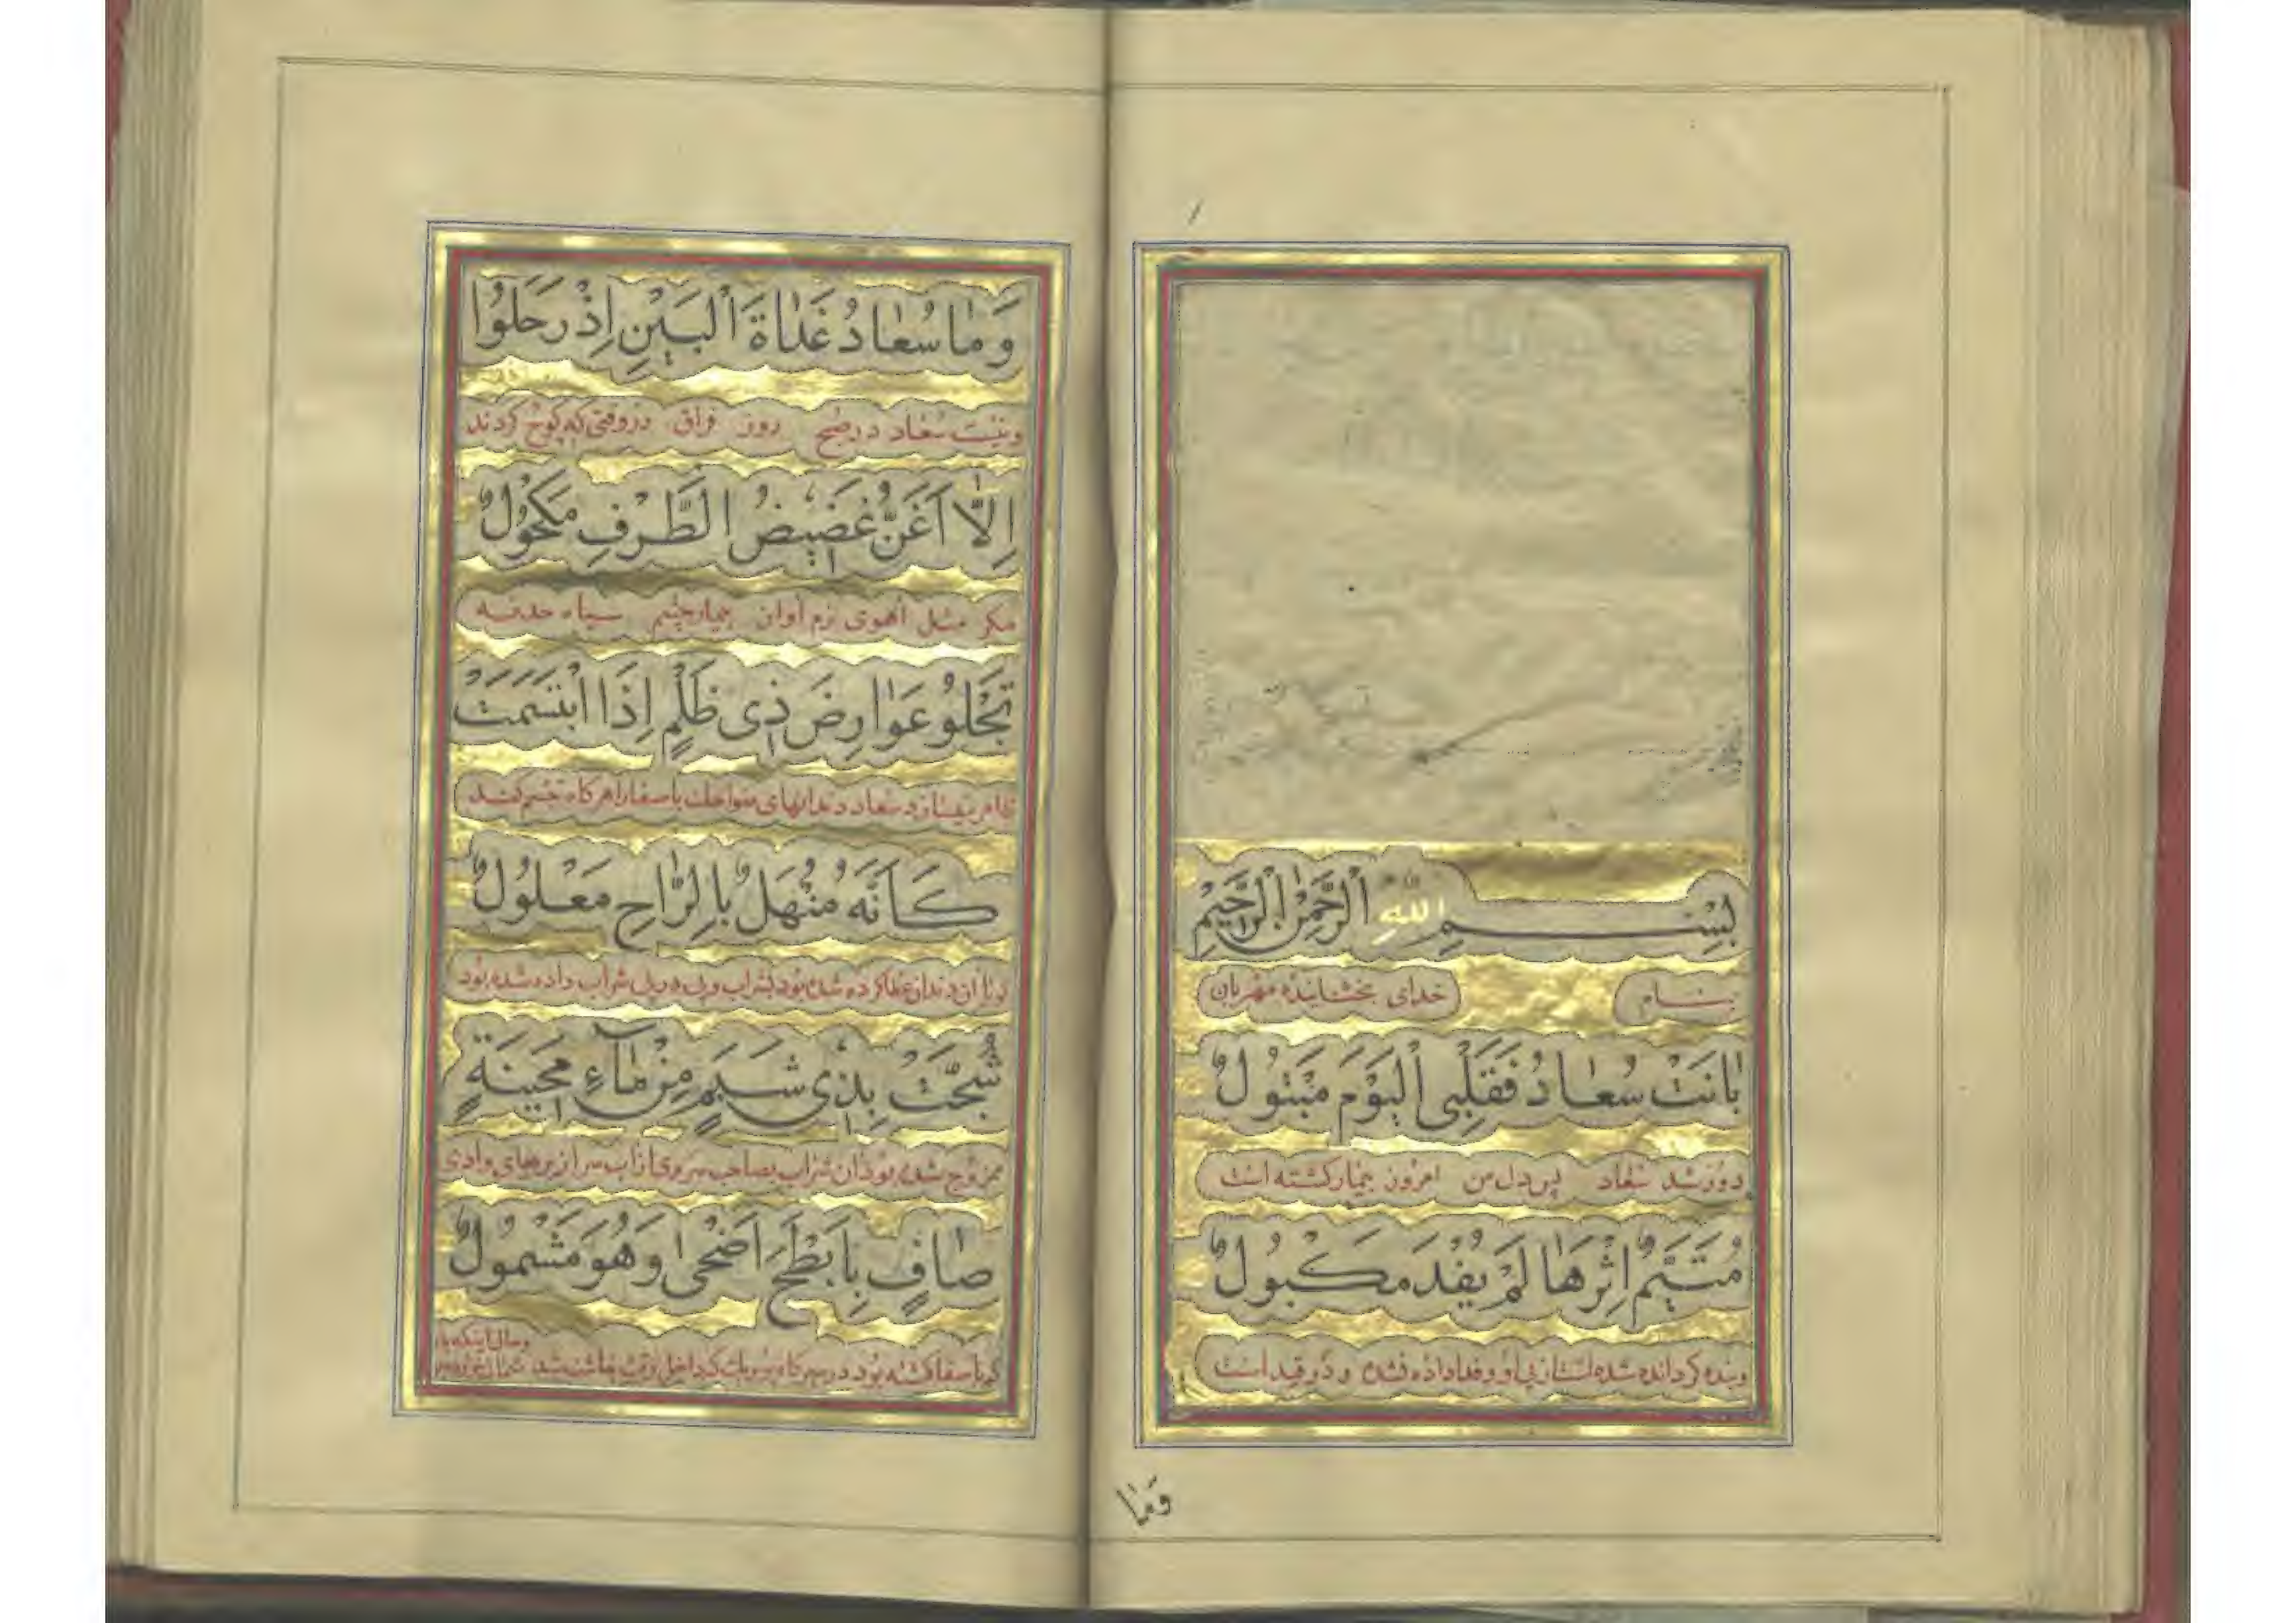 بِسْمِ اللهِ الرَّحْمٰنِ الرَّحِيمِ
بنام خدای بخشاینده مهربان
بٰانَتْ سُعٰادُ فَقَلْبِی الْیَوْمَ مَتْبُولٌ
دور شد سعاد پس دل من امروز بیمار کشته است
مُتَیَّمٌ اِثْرَهٰا لَمْ یُفْدَ مَكْبُولٌ
وبنده کردانده شده است از پی او وفدا داده نشده و در قید است
وَمٰا
وَمٰا سُعٰادُ غَدٰاةَ الْبَیْنِ اِذْ رَحَلُوا
ونیست سعاد در صبح روز فراق در وقتی که کوچ کردند
اِلّٰا اَغَنُّ غَضٖیضُ الطَّرْفِ مَكْحُولٌ
مکر مثل اهوی نرم اواز بیمار چشم سیاه حدقه
تَجْلُو عَوٰارِضَ ذٖی ظَلْمٍ اِذَا ابْتَسَمَتْ
سعاد دندانهای باصفا را هرکاه تبسم کند
كَاَنَّهُ مُنْهَلٌ بِالرّٰاحِ مَعْلُولٌ
ان دندان شده بود بشراب وپی در پی شراب داده شده بود
شُجَّتْ بِذٖی شَبَمٍ مِنْ مٰآءِ مَحْنِیَةٍ
ممزوج شده بود ان شراب بصاحب سردی از اب وادی
صٰافٍ بِاَبْطَحَ اَضْحٰی وَهُوَ مَشْمُولٌ
بود در